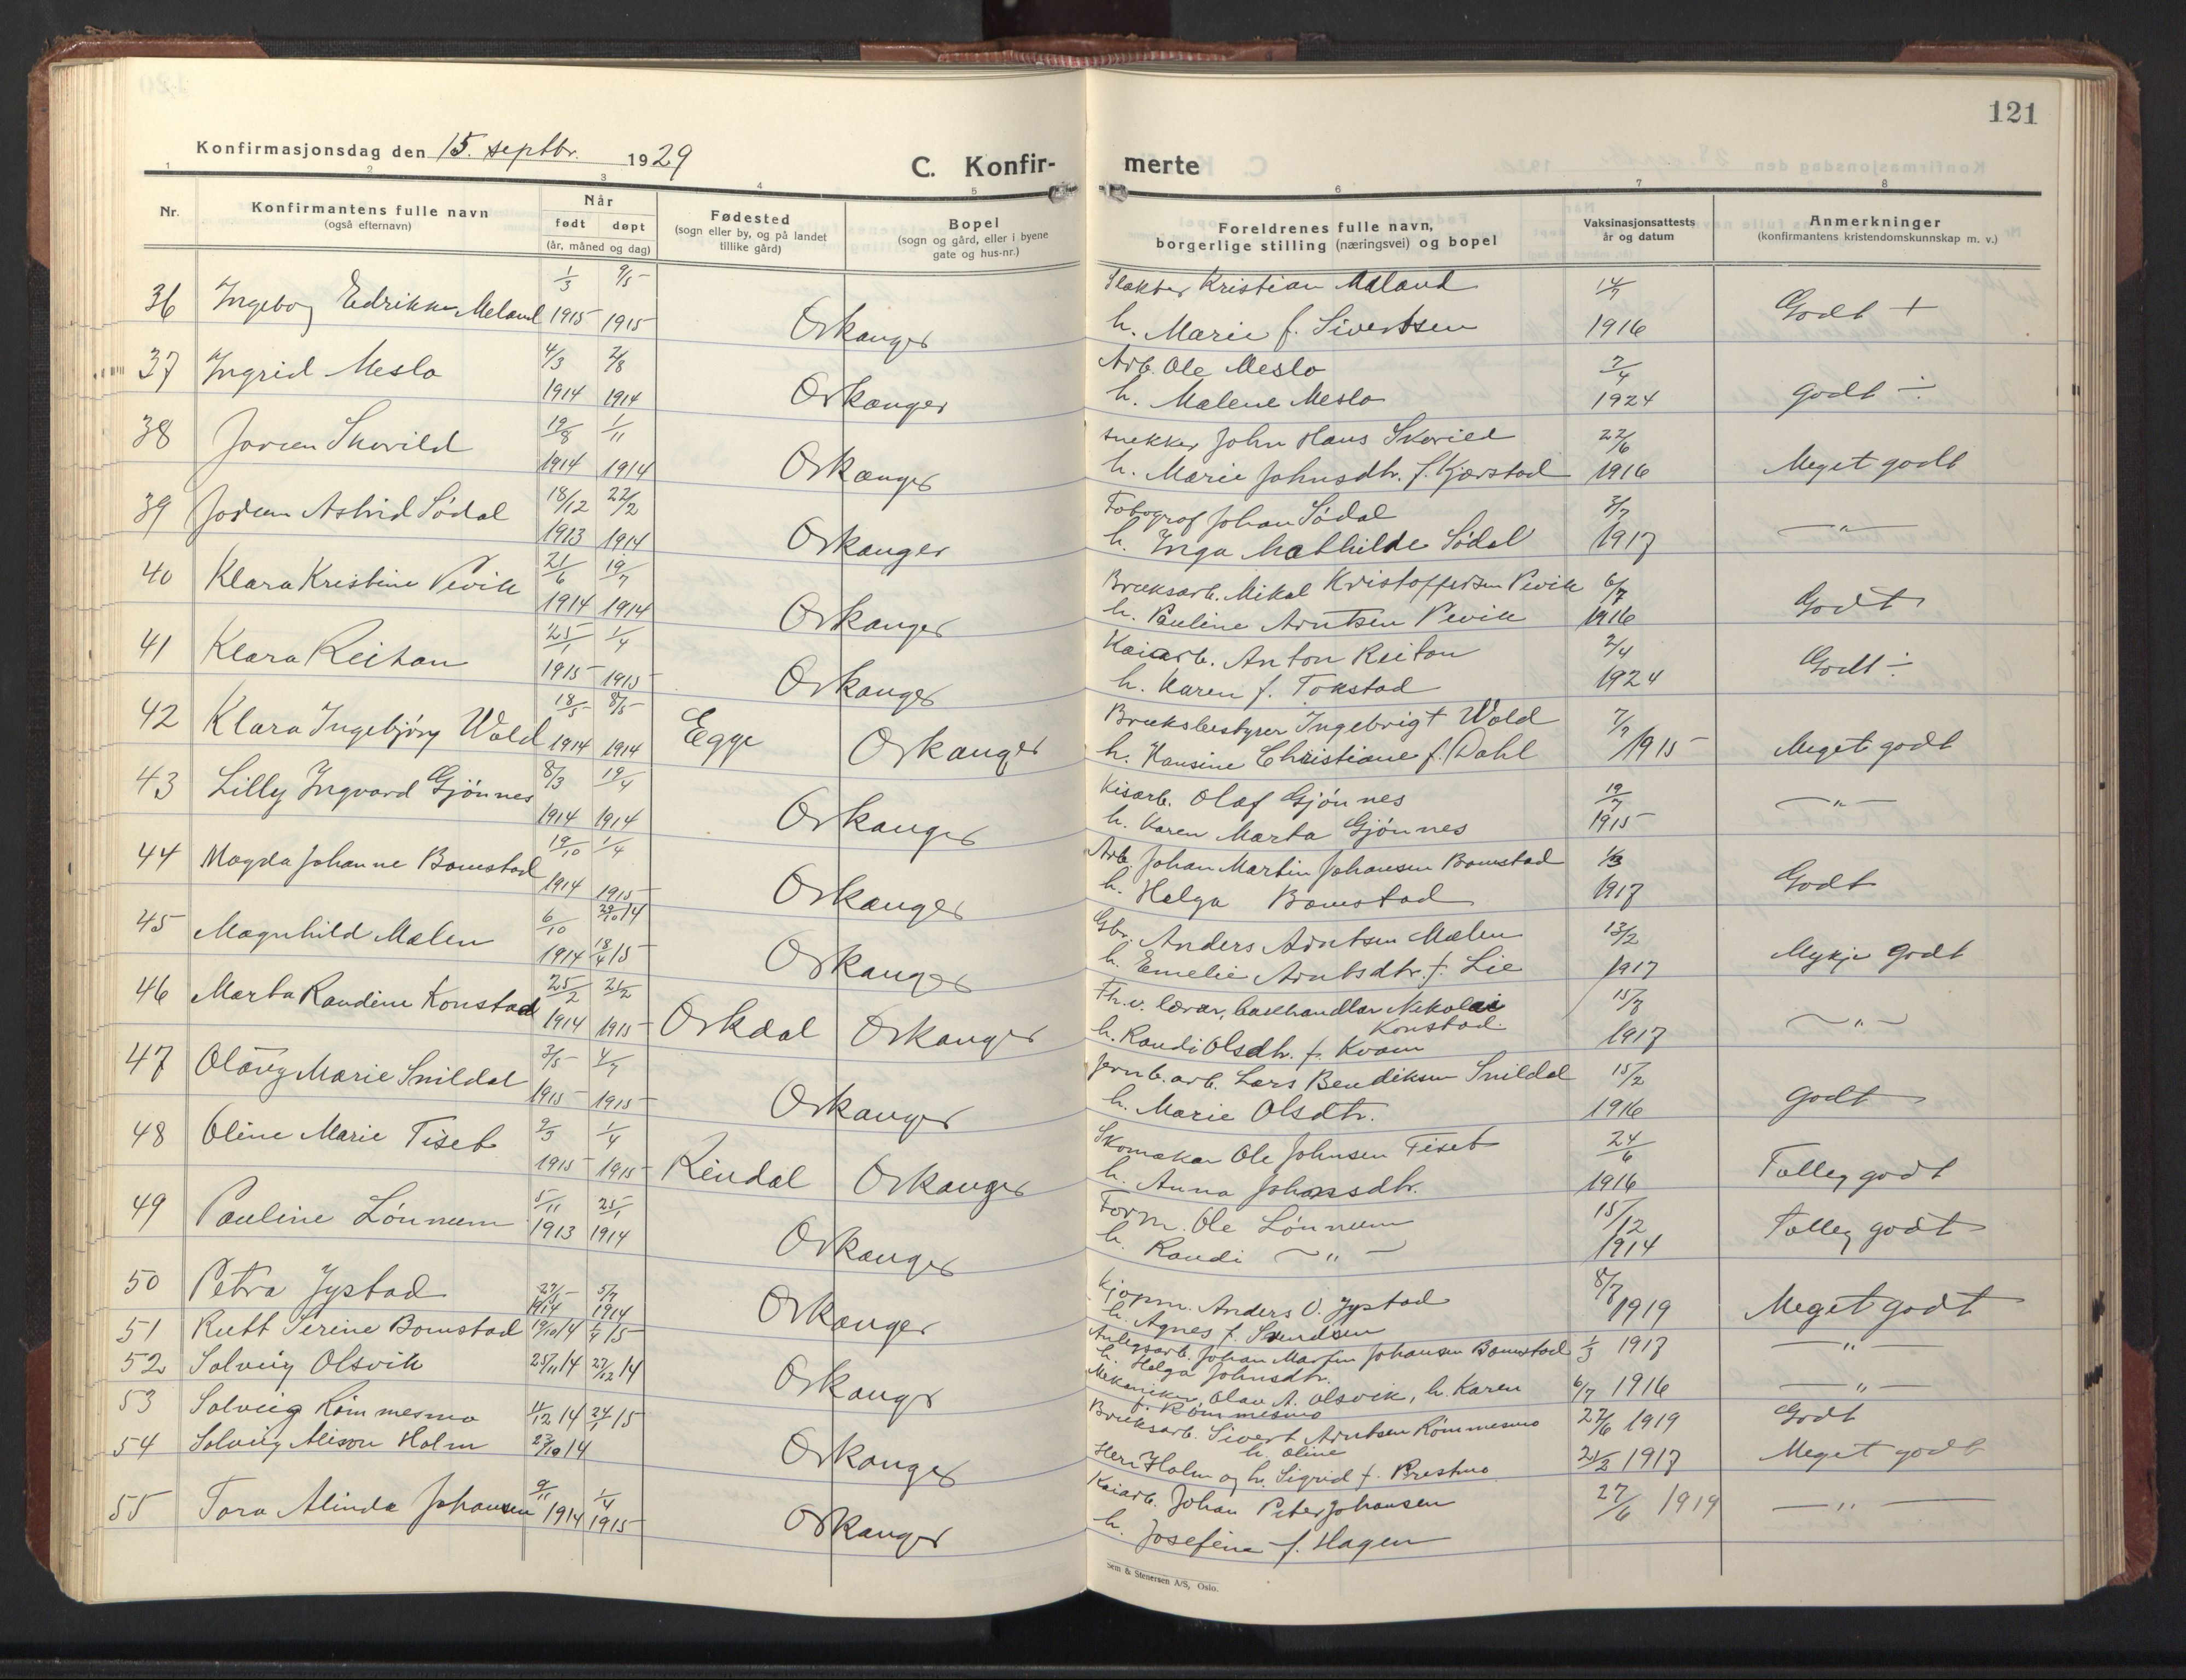 121
Konfirmasjonsdag den 15. septbr. 1929
C. Konfir-
merte
1 2 3 4 5 6 7 8
Nr.
Konfirmantens fulle navn
(også efternavn)
Når
født døpt
(år, måned og dag)
Fødested
(sogn eller by, og på landet
tillike gård)
Bopel
(sogn og gård, eller i byene
gate og hus-nr.)
Foreldrenes fulle navn,
borgerlige stilling (næringsvei) og bopel
Vaksinasjonsattests
år og datum
Anmerkninger
(konfirmantens kristendomskunnskap m. v.)
36 Ingeborg Edrikke Meland 1/3 1915 9/5 1915 Orkanger
Slakter Kristian Meland
h. Marie f. Sivertsen 14/7 1916 Godt +
37 Ingrid Meslo 4/3 1914 2/8 1914 Orkanger
Arb. Ole Meslo
h. Malene Meslo 2/4 1924 godt ÷
38 Jorun Skorild 19/8 1914 1/11 1914 Orkanger
snekker John Hans Skorild
h. Marie Johnsdtr. f. Kjørstad 22/6 1916 Meget godt
39 Jorun Astrid Södal 18/12 1913 22/2 1914 Orkanger
Fotograf Johan Södal
h. Inga Mathilde Södal 3/7 1917 — " —
40 Klara Kristine Pevik 21/6 1914 19/7 1914 Orkanger
Bruksarb. Mikal Kristoffersen Pevik
h. Pauline Arntsen Pevik 6/7 1916 Godt
41 Klara Reitan 25/1 1915 1/4 1915 Orkanger
Kaiarb. Anton Reitan
h. Karen f. Tokstad 2/4 1924 Godt ÷
42 Klara Ingebjörg Wold 18/5 1914 8/5 1914 Egge Orkanger
Bruksbestyrer Ingebrigt Wold
h. Hansine Christiane f. Dahl 7/9 1915 Meget godt
43 Lilly Ingvard Gjönnes 8/3 1914 19/4 1914 Orkanger
Kisarb. Olaf Gjönnes
h. Karen Marta Gjönnes 19/7 1915 — " —
44 Magda Johanne Bomstad 19/10 1914 1/4 1915 Orkanger
Arb. Johan Martin Johansen Bomstad
h. Helga Bomstad 1/3 1917 Godt
45 Magnhild Mælen 6/10 1914 29/10 14 18/4 15 Orkanger
Gbr. Anders Arntsen Mælen
h. Emelie Arntsdtr. f. Lie 13/2 1917 Mykje godt
46 Marta Randine Konstad 25/2 1914 21/2 1915 Orkdal Orkanger
Fh.v. lærar, bakehandlar Nikolai
Konstad.
h. Randi Olsdtr. f. Kvam 15/7 1917 — " —
47 Olaug Marie Snildal 3/5 1915 4/7 1915 Orkanger
Jernb. arb. Lars Bendiksen Snildal
h. Marie Olsdtr. 15/2 1916 godt
48 Oline Marie Tiset 9/3 1915 1/4 1915 Rindal Orkanger
Skomakar Ole Johnsen Tiset
h. Anna Johansdtr. 24/6 1916 Tålleg godt
49 Pauline Lönnum 5/11 1913 25/1 1914 Orkanger
Form. Ole Lönnum
h. Randi — " — 15/12 1914 Tålleg godt
50 Petra Jystad 23/5 1914 5/7 1914 Orkanger
Kjøpm. Anders O. Jystad
h. Agnes f. Svendsen 8/7 1919 Meget godt
51 Rutt Serine Bomstad 19/10 14 1/4 15
Anlegsarb. Johan Martin Johansen Bomstad
h. Helga Johnsdtr. 1/3 1917 — " —
52 Solveig Olsvik 25/11 14 27/12 14 Orkanger
Mekaniker Olav A. Olsvik, h. Karen
f. Römmesmo 6/7 1916 — " —
53 Solveig Römmesmo 11/12 14 24/1 15
Bruksarb. Sivert Arntsen Römmesmo
h. Oline 27/6 1919 Godt
54 Solveig Alison Holm 23/10 14 Orkanger
Herr Holm og h. Sigrid f. Prestmo 21/2 1917 Meget godt
55 Tora Alinda Johansen 9/11 1914 1/4 1915 Orkanger
Kaiarb. Johan Peter Johansen
h. Josefine f. Hagen 27/6 1919 — " —
Sem & Stenersen A/S, Oslo.